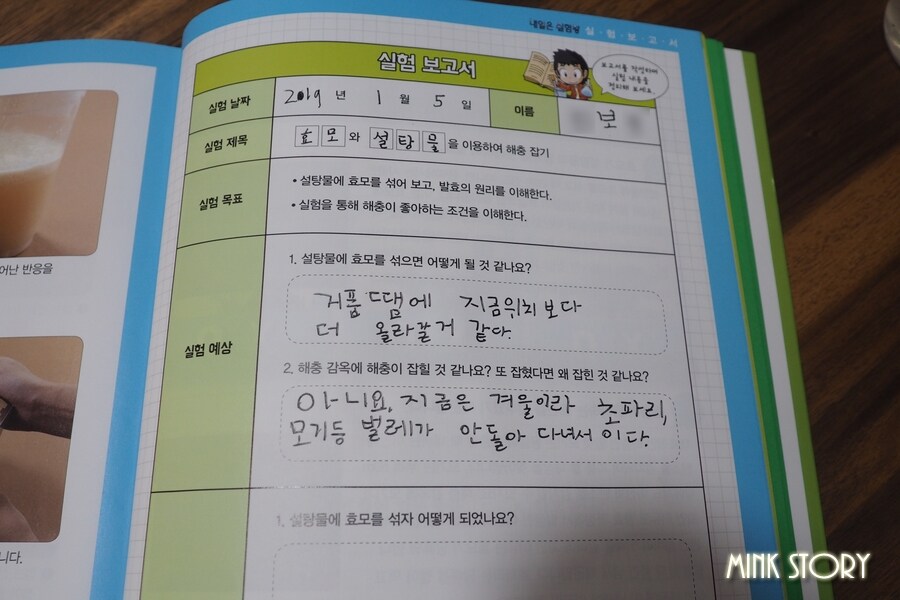 내일은 실험왕 실·험·보·고·서
실험 보고서
보고서를 작성하며
실험 내용을
정리해 보세요.
실험 날짜 2019 년 1 월 5 일 이름 보
실험 제목 효모와 설탕물을 이용하여 해충 잡기
실험 목표
• 설탕물에 효모를 섞어 보고, 발효의 원리를 이해한다.
• 실험을 통해 해충이 좋아하는 조건을 이해한다.
실험 예상
1. 설탕물에 효모를 섞으면 어떻게 될 것 같나요?
거품 땜에 지금위치 보다
더 올라갈거 같다.
2. 해충 감옥에 해충이 잡힐 것 같나요? 또 잡혔다면 왜 잡힌 것 같나요?
아니요, 지금은 겨울이라 초파리,
모기등 벌레가 안돌아 다녀서 이다.
1. 설탕물에 효모를 섞자 어떻게 되었나요?
어난 반응을
니다.
MINK STORY